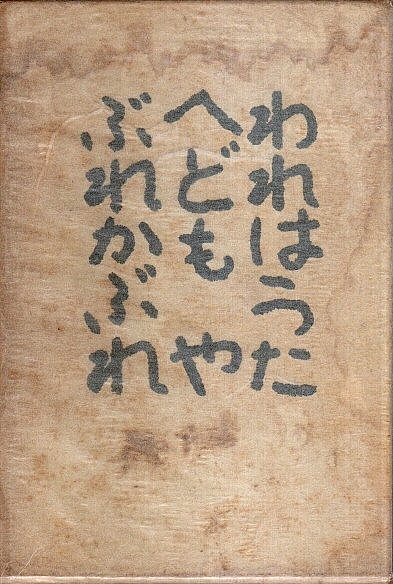 われはうた
へども　や
ぶれかぶれ